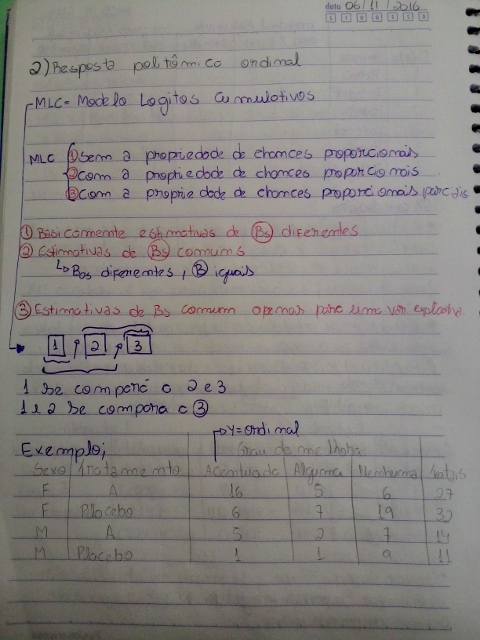 data 06/11/2016
2) Resposta politômica ordinal
MLC = Modelo Logitos Cumulativos
MLC
① Sem a propriedade de chances proporcionais
② com a propriedade de chances proporcionais
③ Com a propriedade de chances proporcionais parciais
① Basicamente estimativas de Bs diferentes
② Estimativas de Bs comuns
↳ B0s diferentes, B iguais
③ Estimativas de Bs comum apenas para uma var explicativa
1 , 2 , 3
1 se compara a 2 e 3
1 e 2 se compara a ③
Y=ordinal
Exemplo; Grau de melhora
Sexo tratamento Acentuada Alguma Nenhuma totais
F A 16 5 6 27
F Placebo 6 7 19 32
M A 5 2 7 14
M Placebo 1 1 9 11